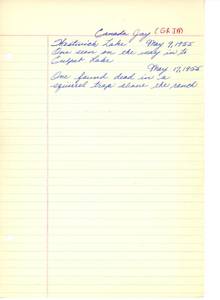 Canada Jay (GRJA)
Westwick Lake May 9, 1955
One seen on the way in to
Lake
May 17, 1955
One found dead in a
squirrel trap above the ranch